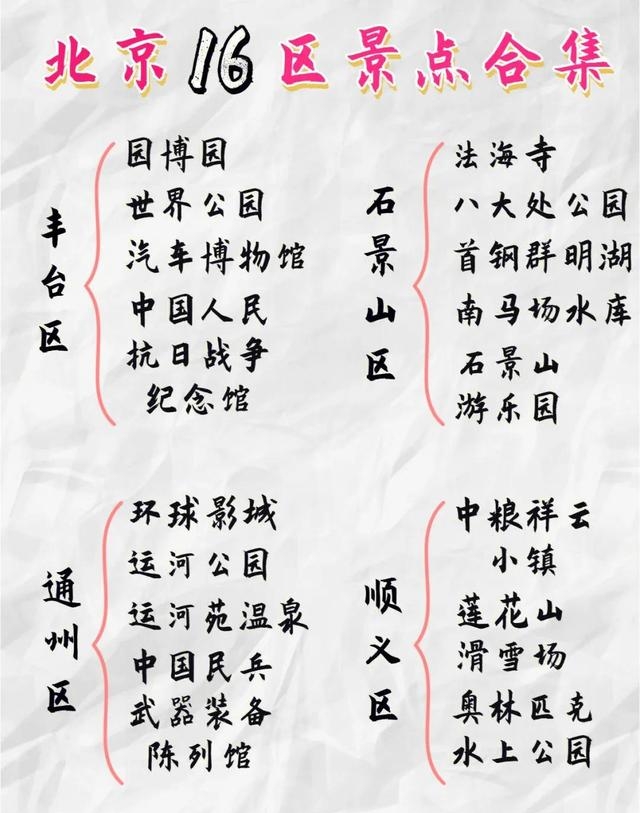 北京16区景点合集
丰台区
园博园
世界公园
汽车博物馆
中国人民
抗日战争
纪念馆
石景山区
法海寺
八大处公园
首钢群明湖
南马场水库
石景山
游乐园
通州区
环球影城
运河公园
运河苑温泉
中国民兵
武器装备
陈列馆
顺义区
中粮祥云
小镇
莲花山
滑雪场
奥林匹克
水上公园